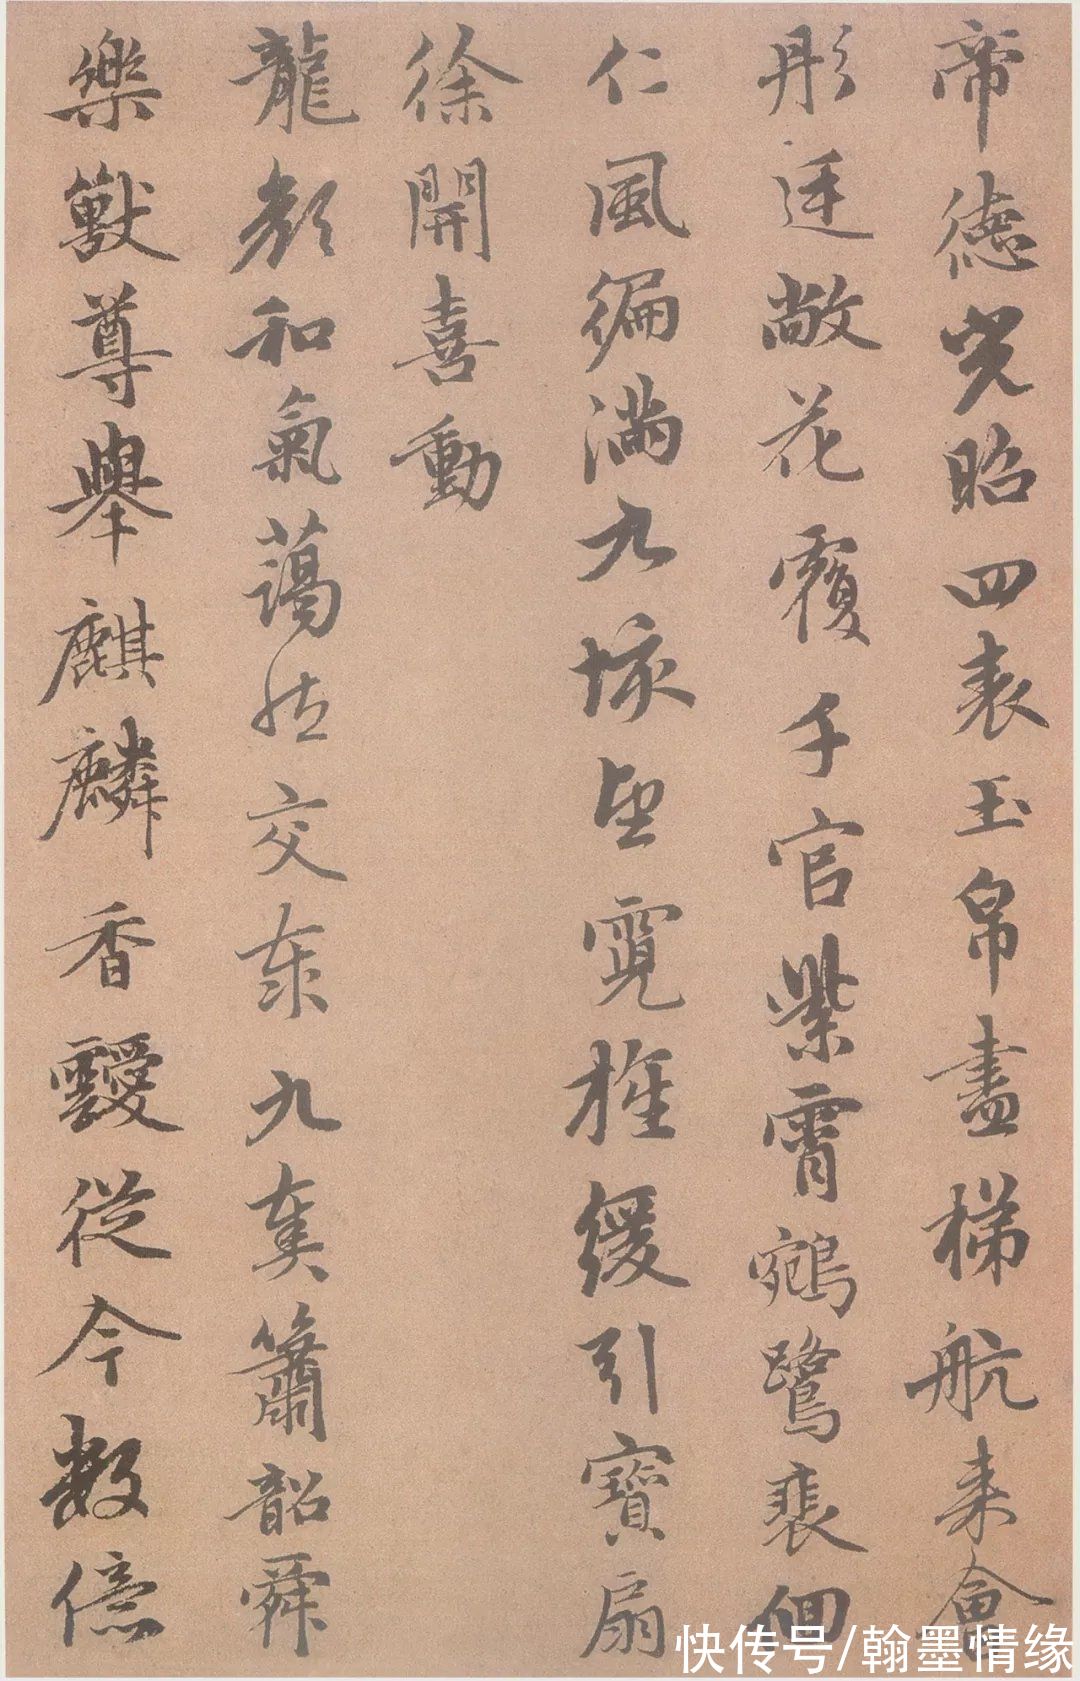 帝德光昭四表玉帛盡梯航来會
彤廷敞花覆千官紫霄鵷鷺裴佪
仁風徧满九垓望霓旌緩引寶扇
徐開喜動
龍顔和氣藹然交泰九奏簫韶舜
樂獸尊舉麒麟香靉從今數億
快传号/翰墨情缘